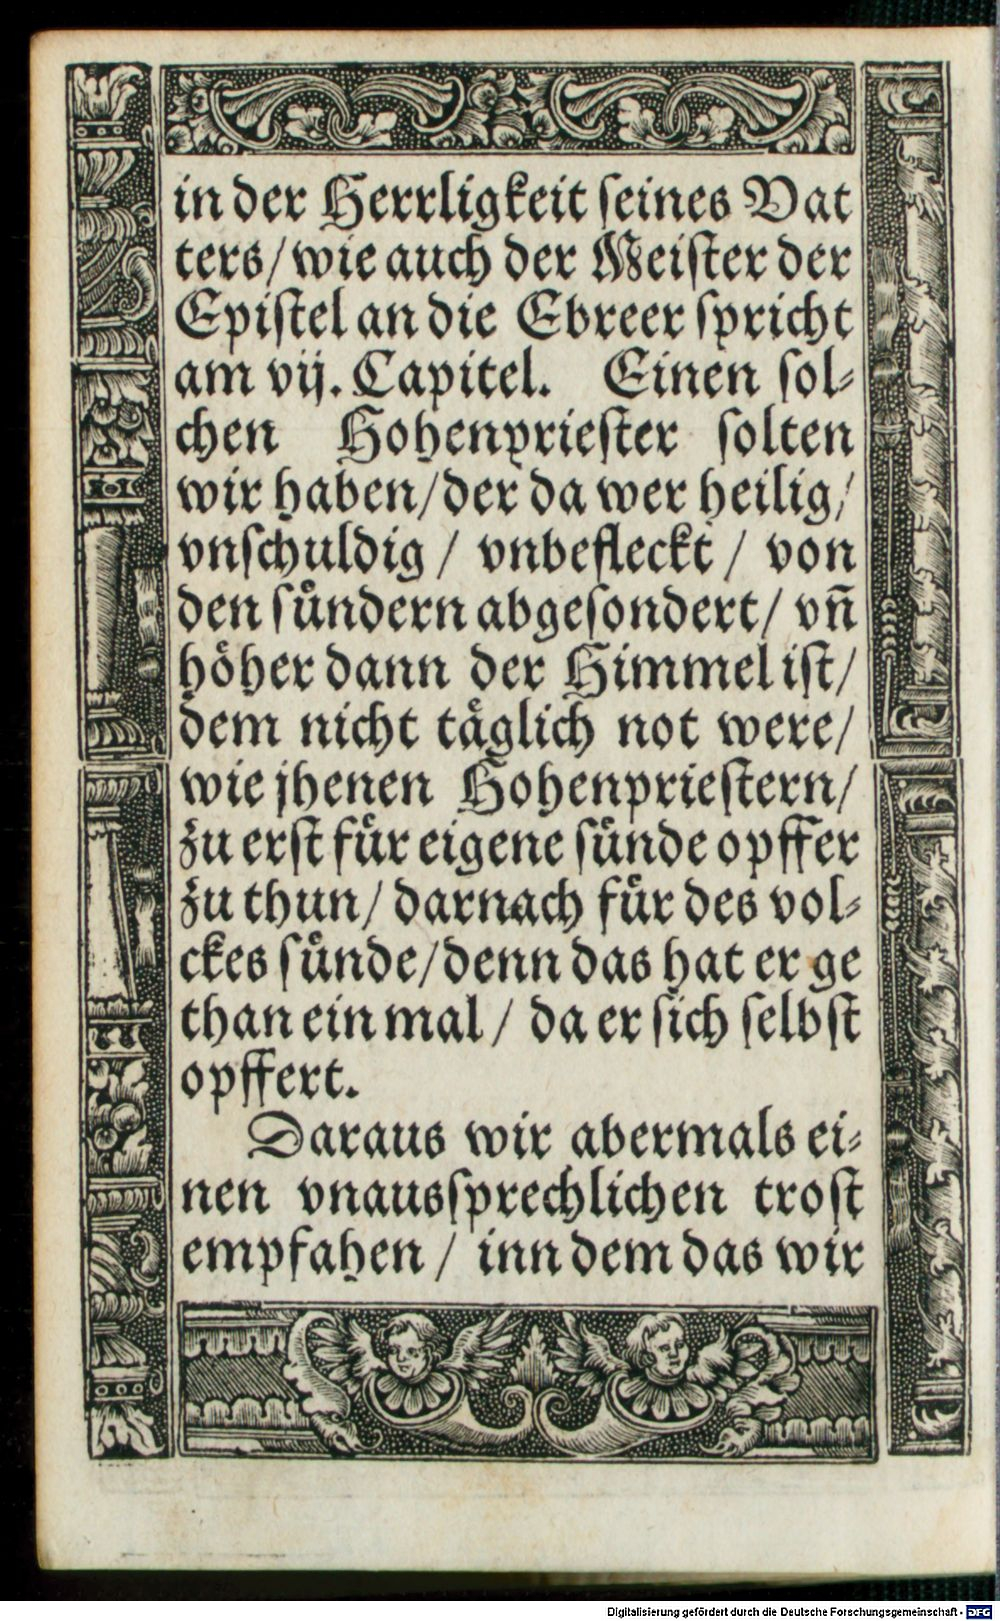 in der Herrligkeit ſeines Vat
ters/ wie auch der Meiſter der
Epiſtel an die Ebreer ſpricht
am vij. Capitel. Einen ſol⸗
chen Hohenprieſter ſolten
wir haben/ der da wer heilig/
vnſchuldig / vnbefleckt / von
den ſuͤndern abgeſondert/ vñ
hoͤher dann der Himmel iſt/
dem nicht taͤglich not were/
wie jhenen Hohenprieſtern/
zu erſt fuͤr eigene ſuͤnde opffer
zu thun/ darnach fuͤr des vol⸗
ckes ſuͤnde/ denn das hat er ge
than ein mal / da er ſich ſelbſt
opffert.
Daraus wir abermals ei⸗
nen vnausſprechlichen troſt
empfahen / inn dem das wir
Digitalisierung gefördert durch die Deutsche Forschungsgemeinschaft - DFG